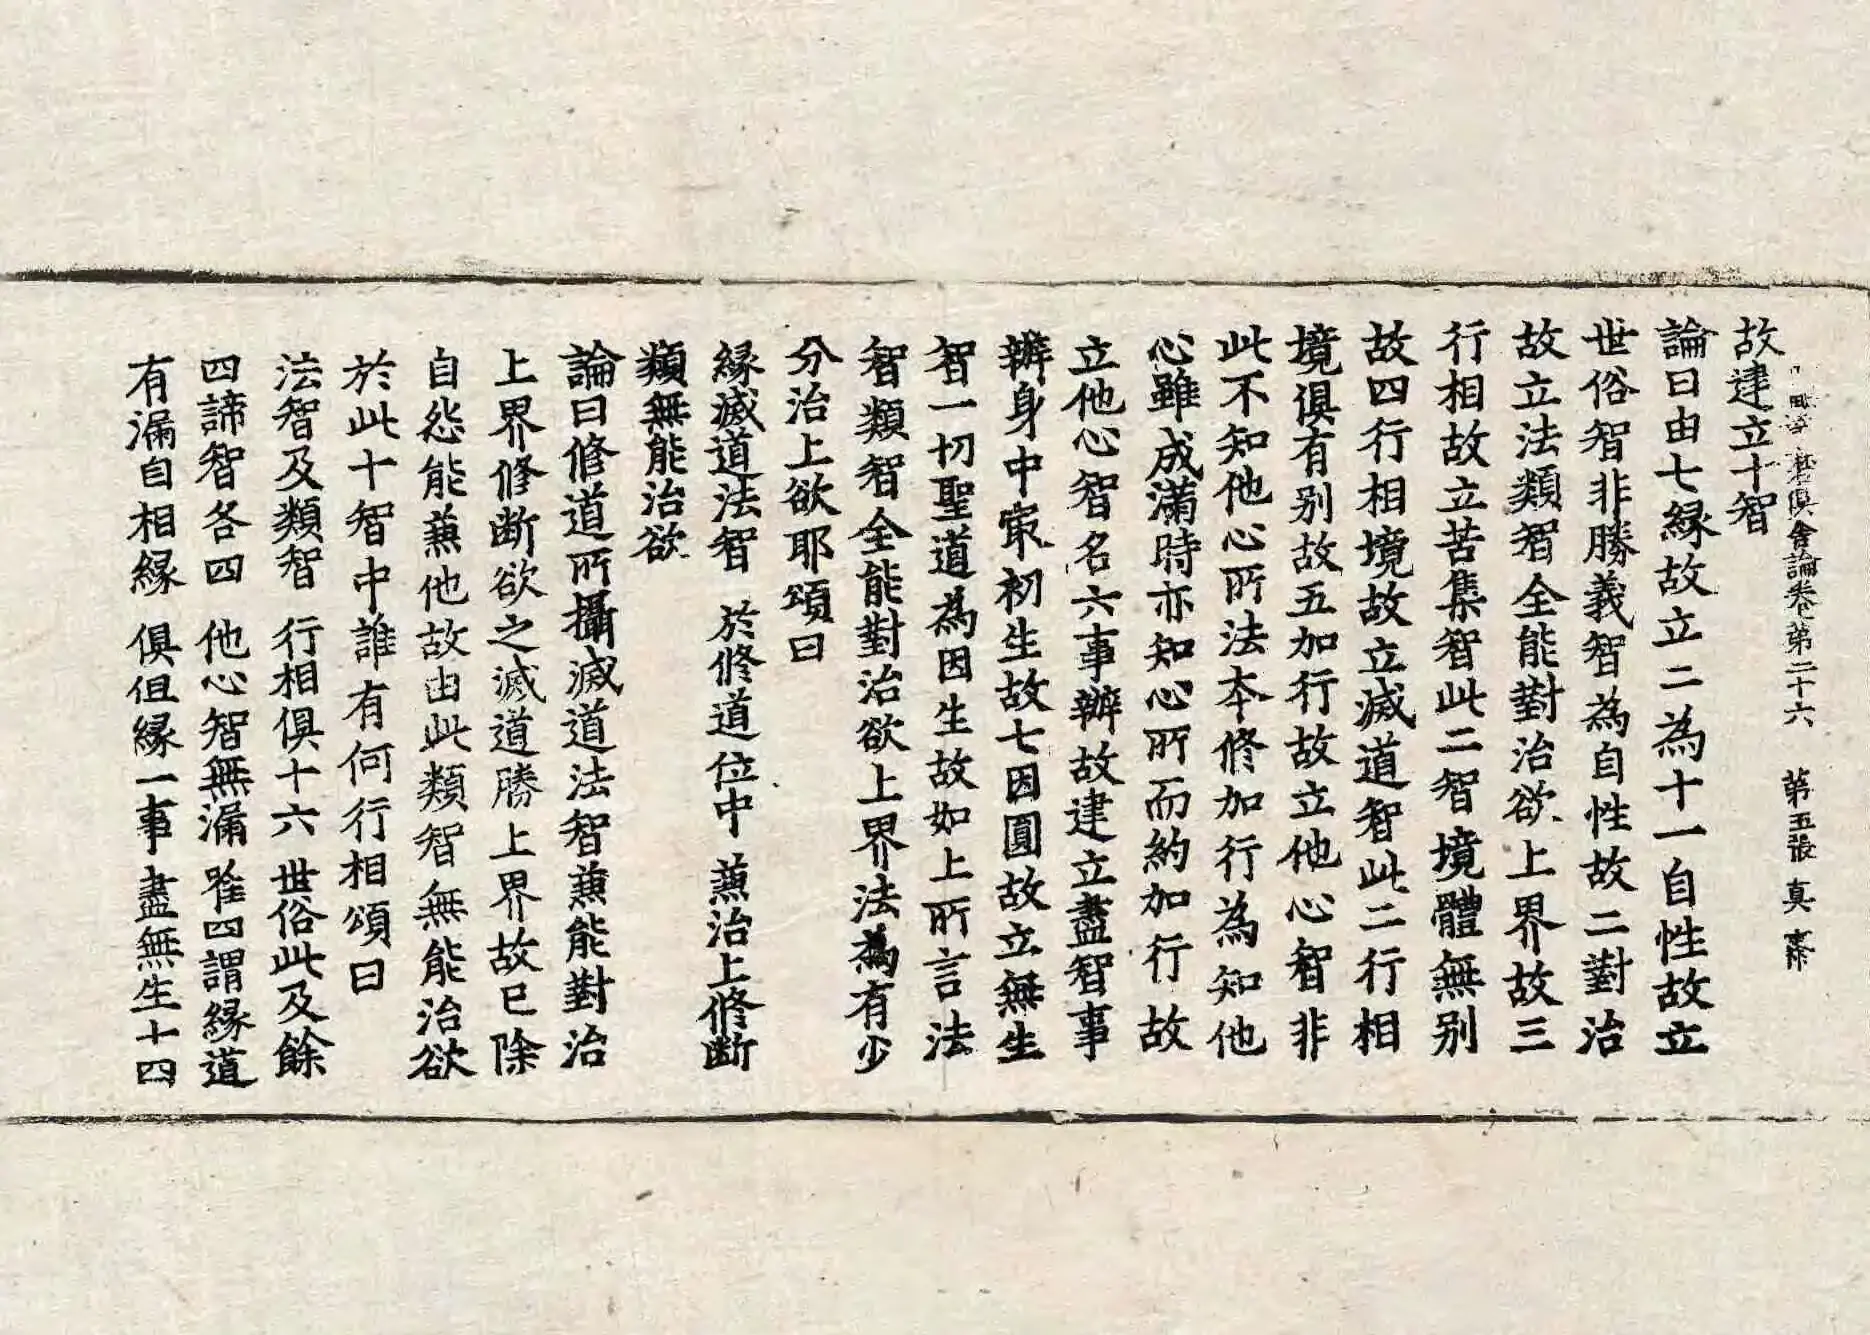 俱舍論卷第二十六 第五張 真
故建立十智
論曰由七緣故立二為十一自性故立
世俗智非勝義智為自性故二對治
故立法類智全能對治欲上界故三
行相故立苦集智此二智境體無別
故四行相境故立滅道智此二行相
境俱有別故五加行故立他心智非
此不知他心所法本修加行為知他
心雖成滿時亦知心所而約加行故
立他心智名六事辦故建立盡智事
辦身中㝡初生故七因圓故立無生
智一切聖道為因生故如上所言法
智類智全能對治欲上界法為有少
分治上欲耶頌曰
緣滅道法智 於修道位中 兼治上修斷
類無能治欲
論曰修道所攝滅道法智兼能對治
上界修斷欲之滅道勝上界故已除
自怨能兼他故由此類智無能治欲
於此十智中誰有何行相頌曰
法智及類智 行相俱十六 世俗此及餘
四諦智各四 他心智無漏 唯四謂緣道
有漏自相緣 俱但緣一事 盡無生十四